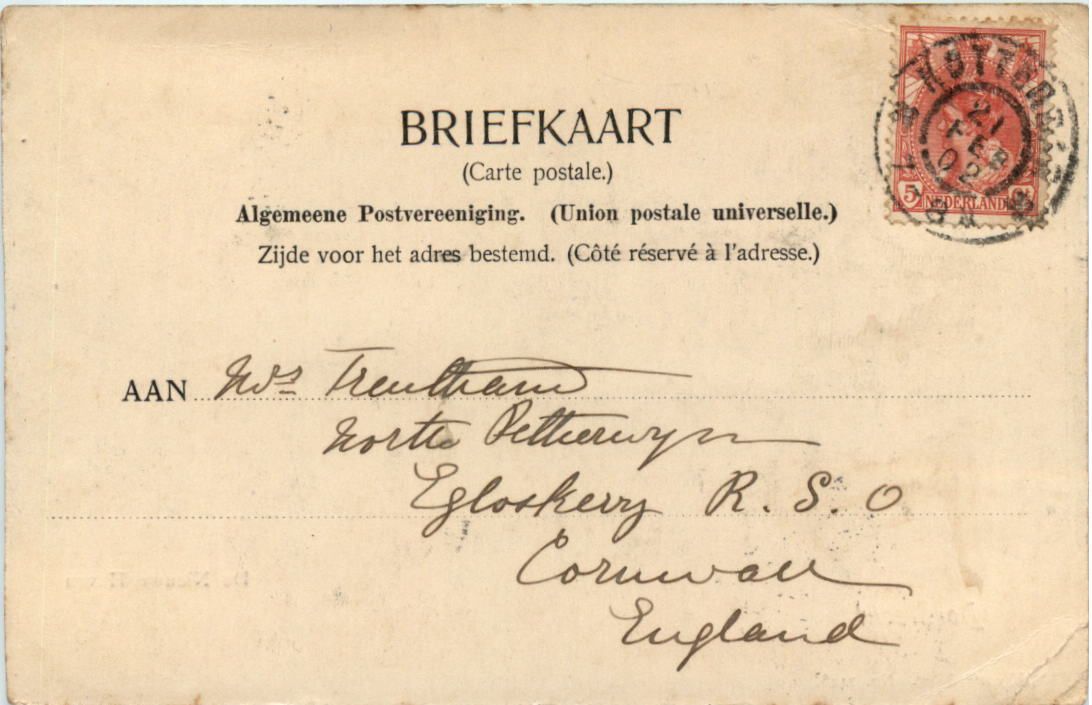 BRIEFKAART
(Carte postale.)
Algemeene Postvereeniging. (Union postale universelle.)
Zijde voor het adres bestemd. (Côté réservé à l'adresse.)
ROTTERDAM
21
FEB
02
5 NEDERLAND
AAN Mrs Trentham
North Petherwyn
Egloskerry R. S. O
Cornwall
England